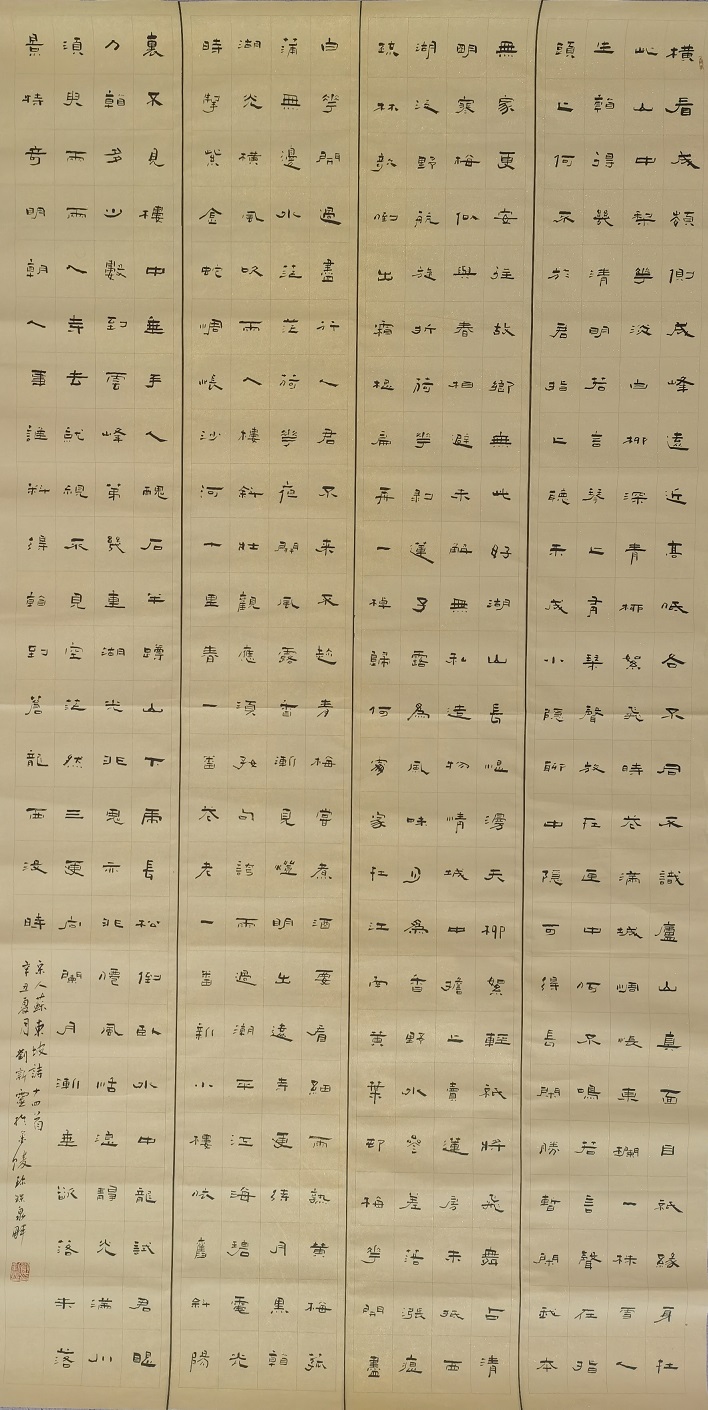 橫看成嶺側成峰遠近高低各不同不識廬山真面目祇緣身在
此山中梨花淡白柳深青柳絮飛時花滿城惆悵東欄一株雪人
生看得幾清明若言琴上有琴聲放在匣中何不鳴若言聲在指
頭上何不於君指上聽未成小隱聊中隱可得長閑勝暫閑我本
無家更安往故鄉無此好湖山長恨漫天柳絮輕祇將飛舞占清
明寒梅似與春相避未解無私造物情城中擔上賣蓮房未抵西
湖泛野航旋折荷花剝蓮子露為風味月為香野水參差落漲痕
疏林欹倒出霜根扁舟一棹歸何處家在江南黃葉邨梅花開盡
白花開過盡行人君不來不趁青梅嘗煮酒要看細雨熟黃梅孤
蒲無邊水茫茫荷花夜開風露香漸見燈明出遠寺更待月黑看
湖光橫風吹雨入樓斜壯觀應須好句誇雨過潮平江海碧電光
時掣紫金蛇惆悵沙河十里春一番花老一番新小樓依舊斜陽
裏不見樓中垂手人醜石半蹲山下虎長松倒臥水中龍試君眼
力看多少數到雲峰第幾重湖光非鬼亦非仙風恬浪靜光滿川
須臾兩兩入寺去就視不見空茫然三更向闌月漸垂欲落未落
景特奇明朝人事誰料得看到蒼龍西沒時
宋人蘇東坡詩十四首
辛丑夏月劉新靈於平陵珍珠泉畔